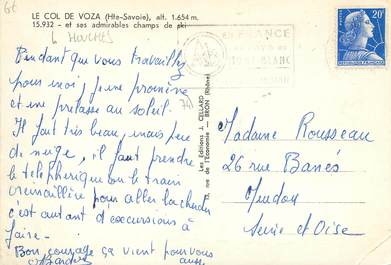 6t
LE COL DE VOZA (Hte-Savoie), alt. 1.654 m.
15.932 - et ses admirables champs de ski
les HOUCHES
Pendant que vous travaillez
pour moi, je me promène
et me prélasse au soleil.
Il fait très beau, mais peu
de neige, il faut prendre
le téléphérique ou le train
crémaillère pour aller la chercher
c'est autant d'excursions à
faire -
Bon courage ça vient pour vous
aussi
74
Les Editions J. CELLARD
rue de l'Economie BRON (Rhône)
FRANCE
MONT-BLANC
20F
Madame Rousseau
26 rue Banès
Meudon
Seine et Oise